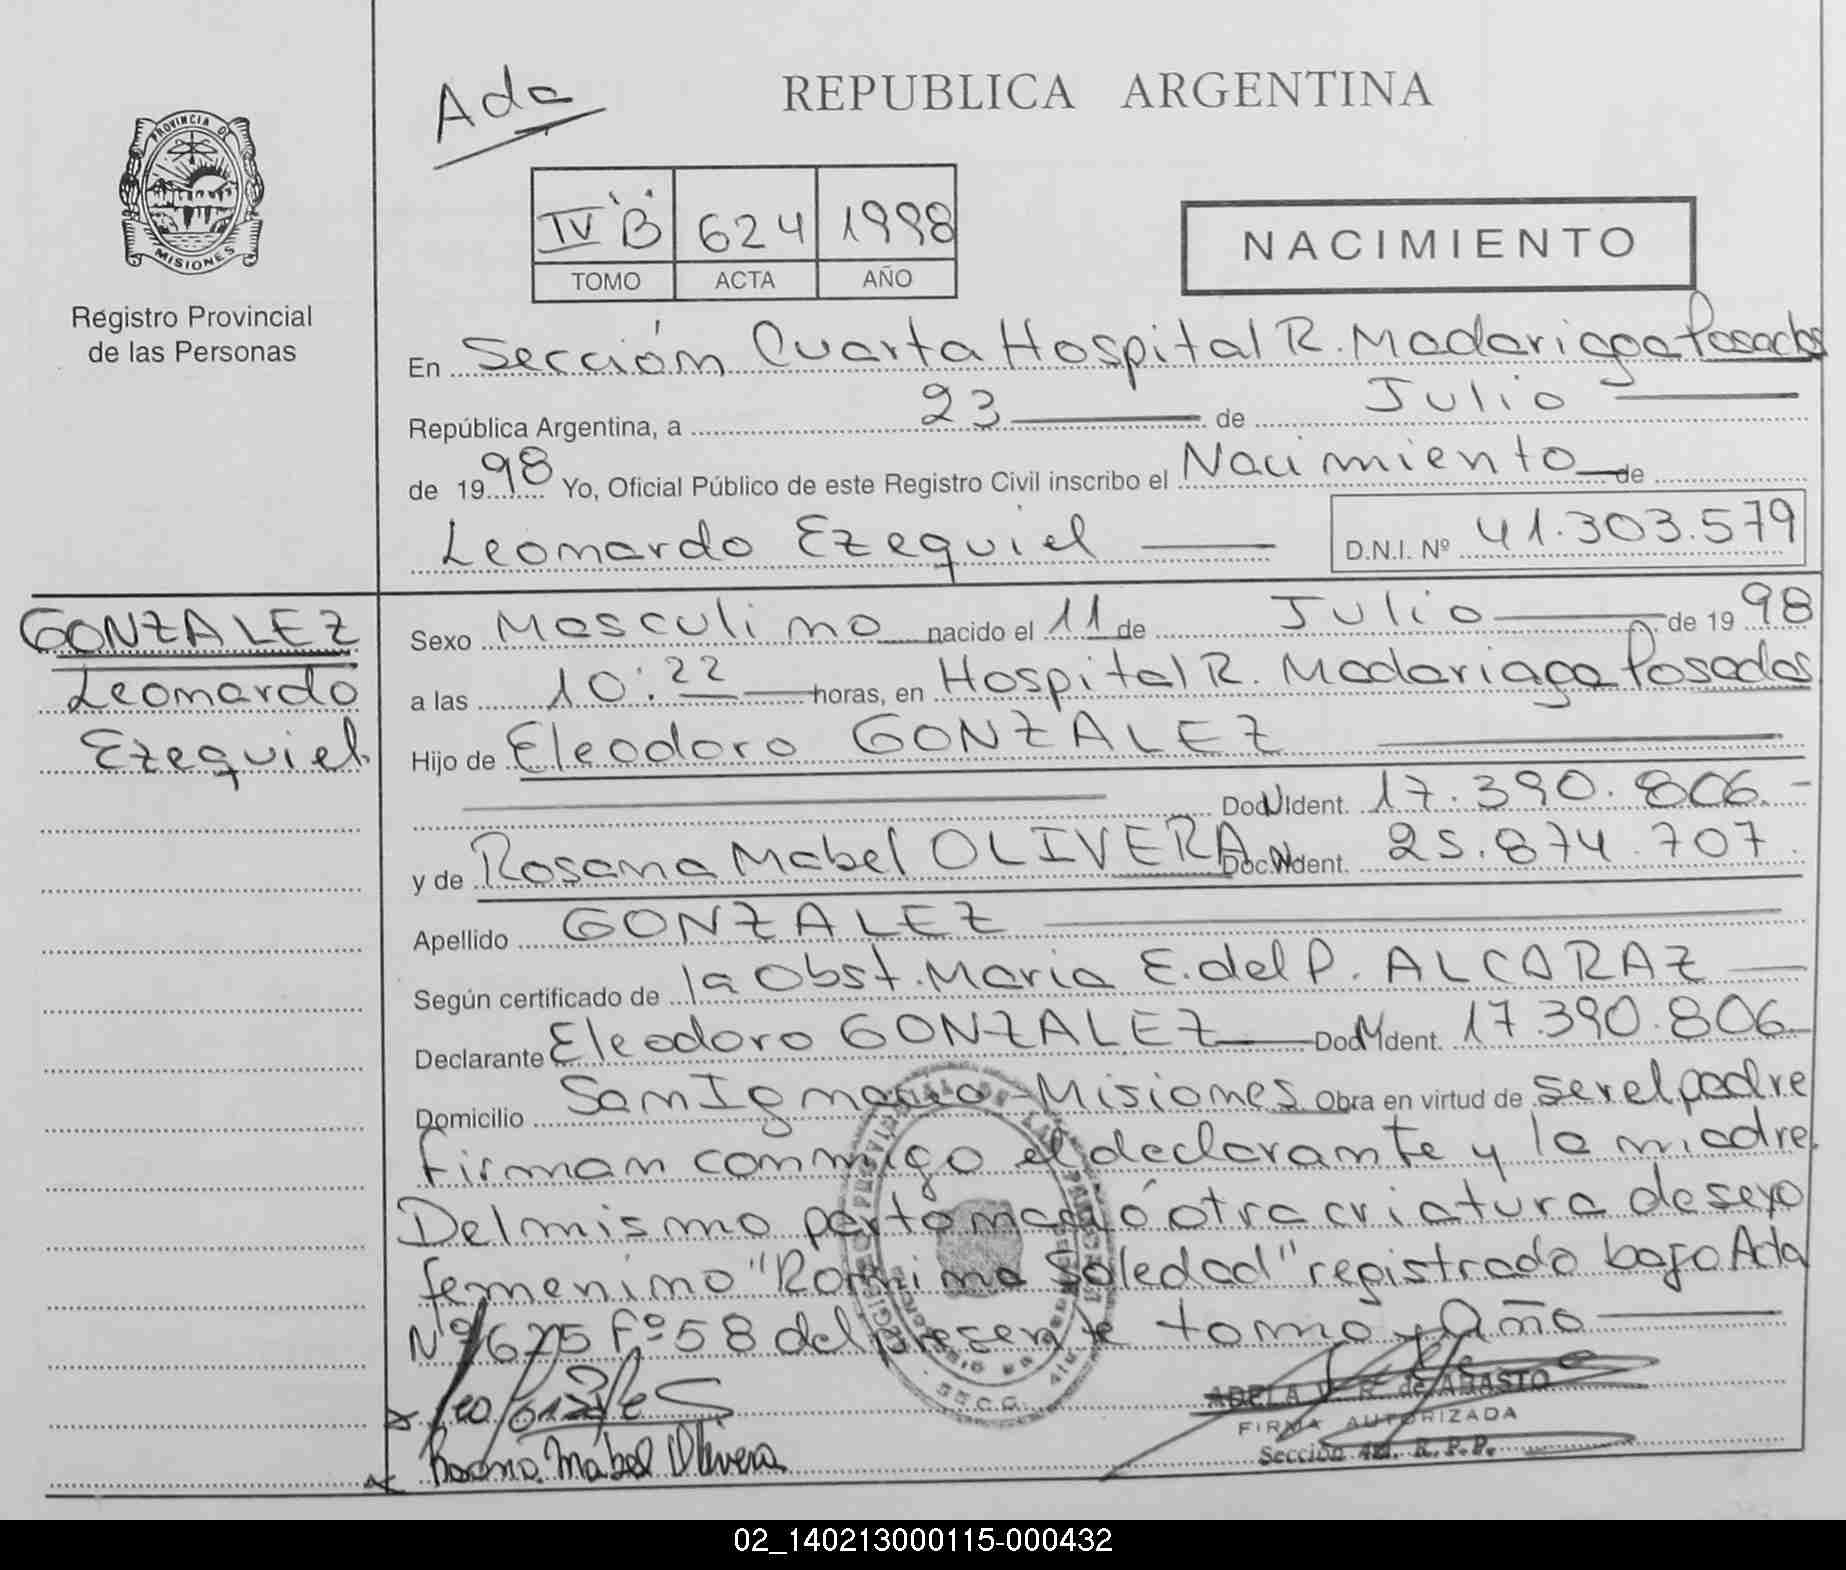 PROVINCIA DE
MISIONES
Registro Provincial
de las Personas
Ada
REPUBLICA ARGENTINA
IV "B" 624 1998
TOMO ACTA AÑO
NACIMIENTO
En Sección Cuarta Hospital R. Madariaga Posadas
República Argentina, a 23 de Julio
de 1998 Yo, Oficial Público de este Registro Civil inscribo el Nacimiento de
Leonardo Ezequiel D.N.I. Nº 41.303.579
GONZALEZ
Leonardo
Ezequiel
Sexo Masculino nacido el 11 de Julio de 1998
a las 10:22 horas, en Hospital R. Madariaga Posadas
Hijo de Eleodoro GONZALEZ
Doc. Ident. 17.390.806.-
y de Rosana Mabel OLIVERA Doc. Ident. 25.874.707.
Apellido GONZALEZ
Según certificado de la Obst. Maria E. del P. ALCARAZ
Declarante Eleodoro GONZALEZ Doc. Ident. 17.390.806
Domicilio San Ignacio - Misiones Obra en virtud de ser el padre
firman conmigo el declarante y la madre.
Del mismo parto nació otra criatura de sexo
femenino "Romina Soledad" registrado bajo Acta
Nº 625 Fº 58 del presente tomo y Año
Rosana Mabel Olivera
ADELA R. de ABASTO
FIRMA AUTORIZADA
Sección 4ta. R. P. P.
02_140213000115-000432